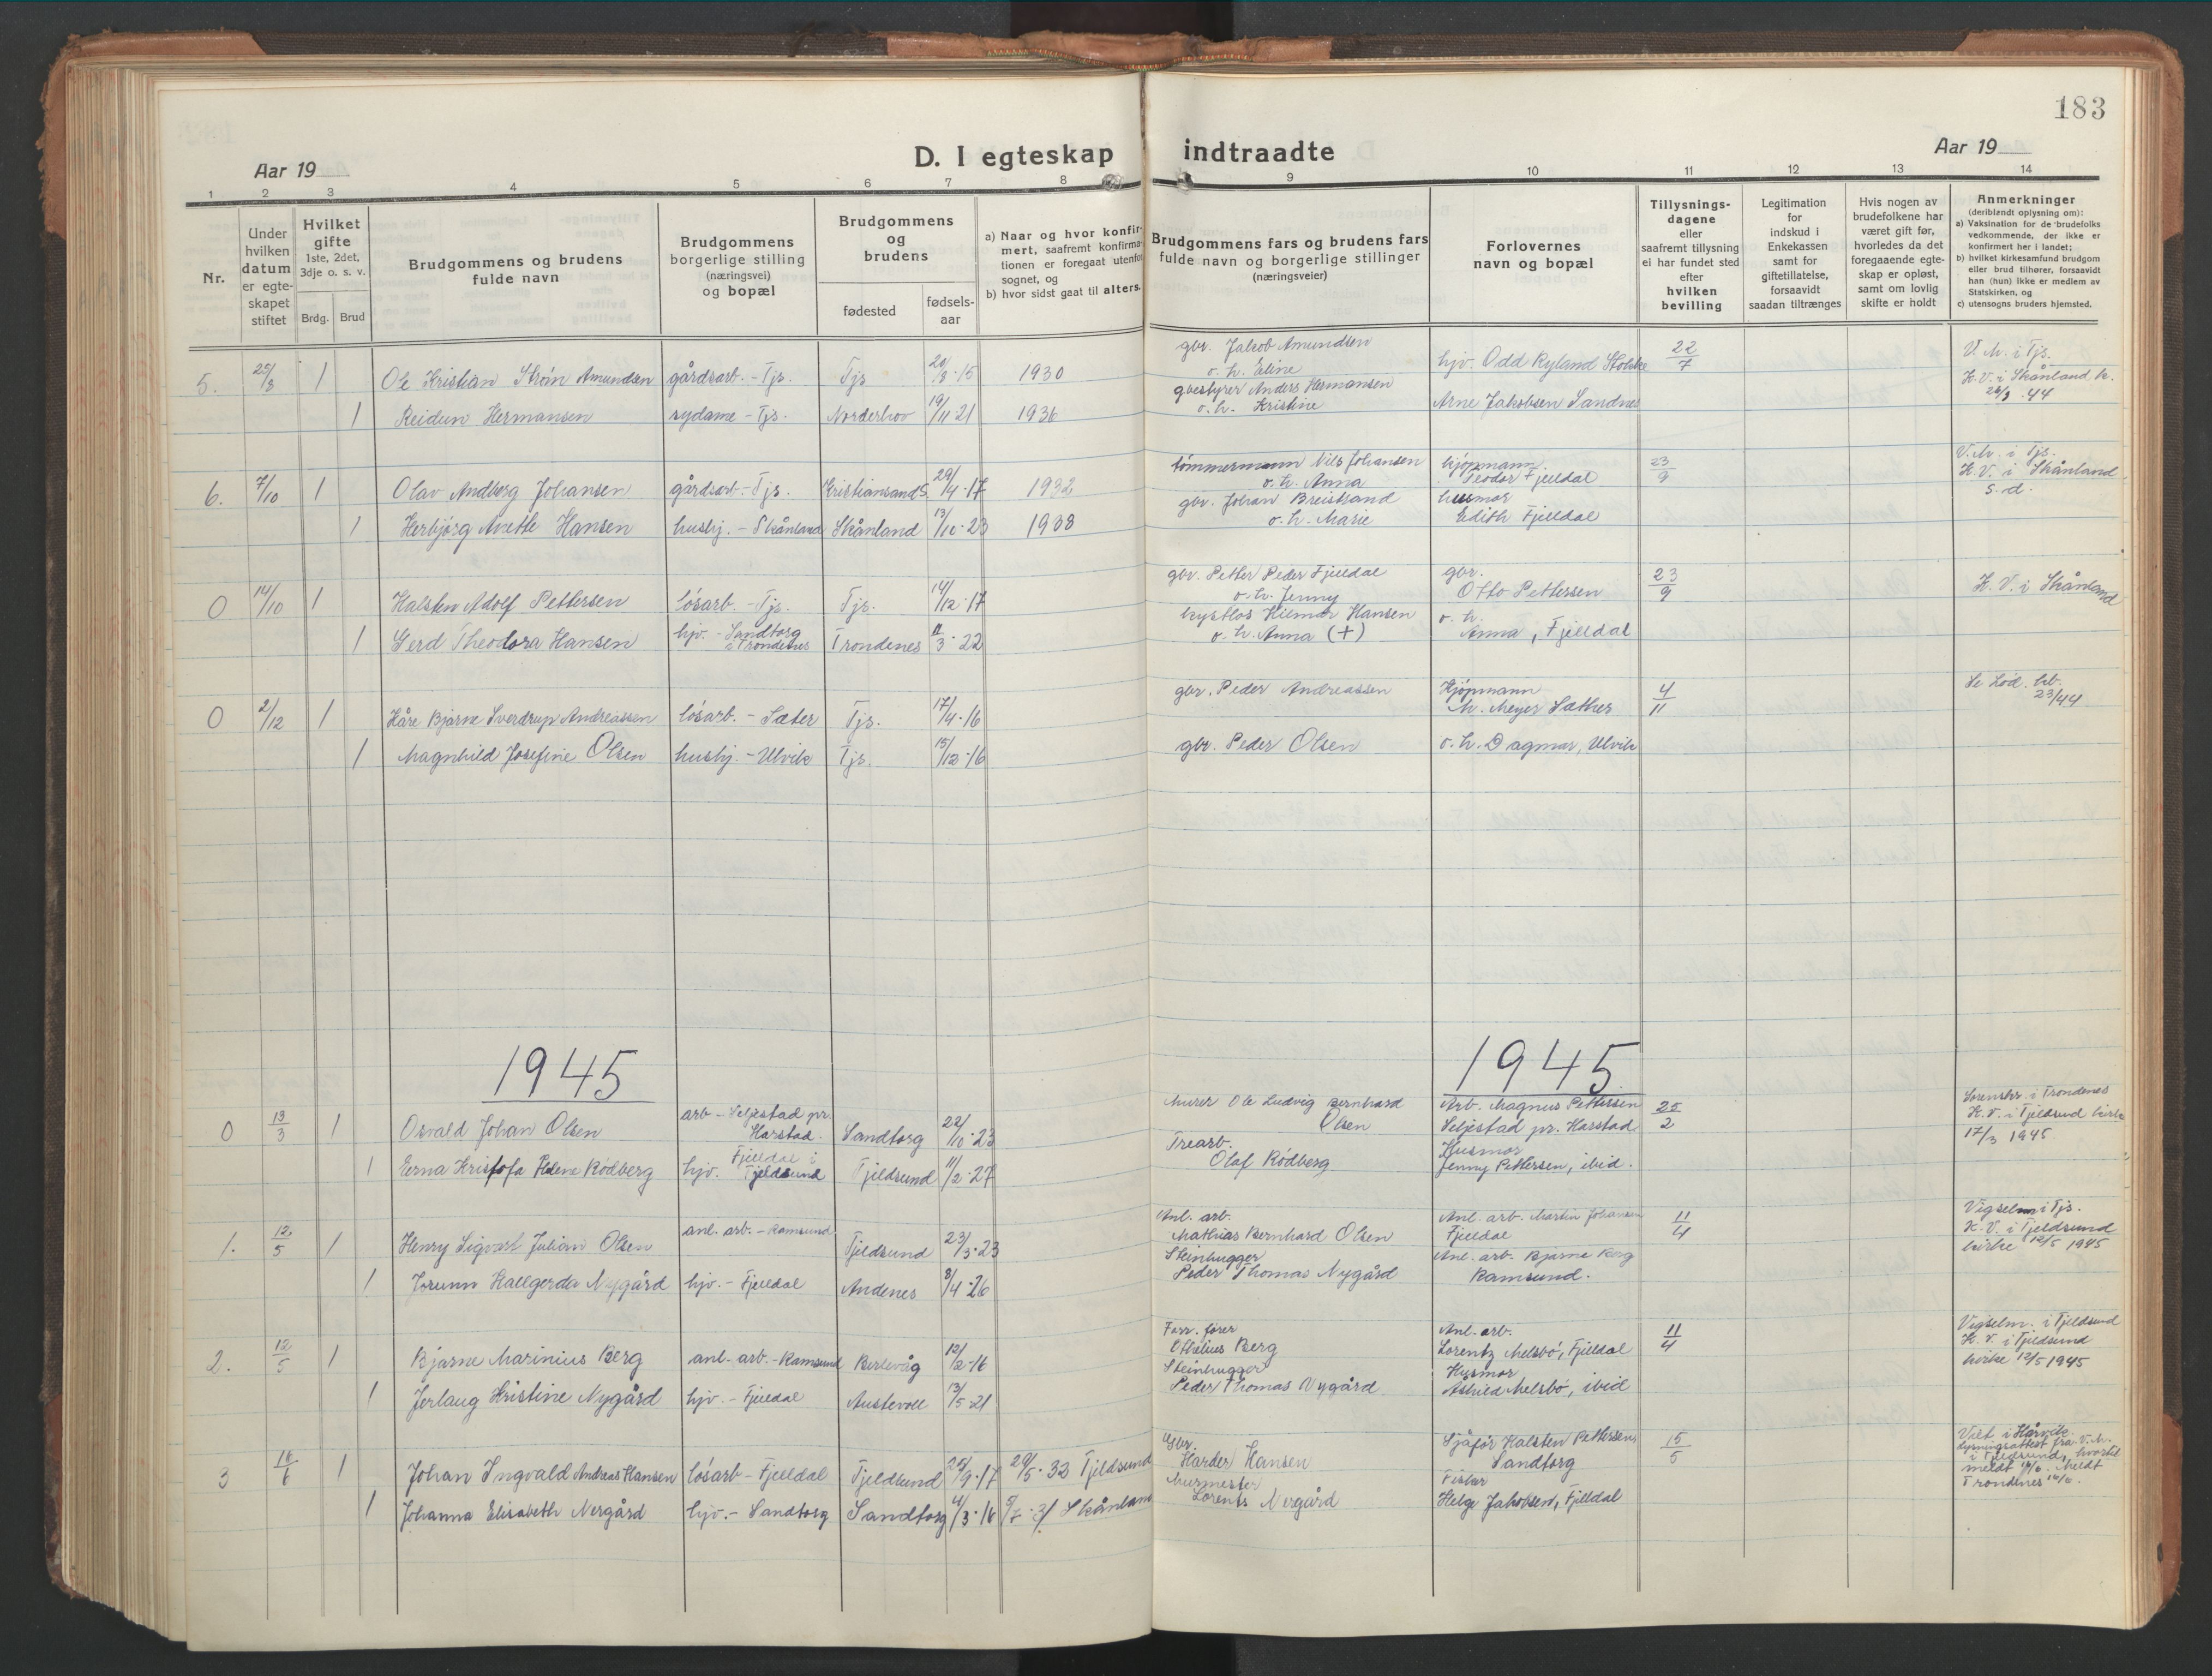 183
D. I egteskap indtraadte
Aar 19
Aar 19
1 2 3 4 5 6 7 8 9 10 11 12 13 14
Nr.
Under hvilken datum er egteskapet stiftet
Hvilket gifte 1ste, 2det, 3dje o. s. v.
Brdg. Brud
Brudgommens og brudens fulde navn
Brudgommens borgerlige stilling (næringsvei) og bopæl
Brudgommens og brudens
fødested
fødsels-aar
a) Naar og hvor konfirmert, saafremt konfirmationen er foregaat utenfor sognet, og
b) hvor sidst gaat til alters.
Brudgommens fars og brudens fars fulde navn og borgerlige stillinger (næringsveier)
Forlovernes navn og bopæl
Tillysningsdagene eller saafremt tillysning ei har fundet sted efter hvilken bevilling
Legitimation for indskud i Enkekassen samt for giftetillatelse, forsaavidt saadan tiltrænges
Hvis nogen av brudefolkene har været gift før, hvorledes da det foregaaende egteskap er opløst, samt om lovlig skifte er holdt
Anmerkninger
(deriblandt oplysning om):
a) Vaksination for de brudefolks vedkommende, der ikke er konfirmert her i landet;
b) hvilket kirkesamfund brudgom eller brud tilhører, forsaavidt han (hun) ikke er medlem av Statskirken, og
c) utensogns bruders hjemsted.
5. 1 Ole Kristian Strøn Amundsen gårdsarb. - Tjs. Tjs 20/3-15 1930 gbr. Jakob Amundsen o. h. Eline hjv. Odd Ryland 22/7 V. M. i Tjs.
K. V. i Skånland k.
1 Reidun Hermansen sydame - Tjs. Norderhov 19/11 21 1936 gbestyrer Anders Hermansen o. h. Kristine Arne Jakobsen Sandnes
6. 7/10 1 Olav Andberg Johansen gårdsarb. - Tjs. Kristiansand S. 29/4-17 1932 tömmermann Nils Johansen o. h. Anna kjöpmann Teodor Fjelldal 23/9 V. M. i Tjs.
K. V. i Skånland s. d.
1 Herbjörg Anette Hansen hushj. - Skånland Skånland 13/10-23 1938 gbr. Johan Breistrand o. h. Marie husmor Edith Fjelldal
0 14/10 1 Halsten Adolf Pettersen lösarb. - Tjs. Tjs. 14/12-17 gbr. Petter Peder Fjelldal o. h. Jenny gbr. Otto Pettersen 23/9 K. V. i Skånland
1 Gerd Theodora Hansen hjv. - Sandtorg i Trondenes Trondenes 11/3-22 kystlos Hilmar Hansen o. h. Anna (+) o. h. Anna, Fjelldal
0 2/12 1 Kåre Bjarne Sverdrup Andreassen lösarb. - Sæter Tjs. 17/4-16 gbr. Peder Andreassen Kjöpmann M. Meyer Sæther 4/11 Se Löd. 23/44
1 Magnhild Josefine Olsen hushj. - Ulvik Tjs. 15/12-16 gbr. Peder Olsen o. h. Dagmar, Ulvik
1945 1945
0 13/3 1 Osvald Johan Olsen arb - Seljestad pr. Harstad. Sandtorg 22/10-23 Murer Ole Ludvig Bernhard Olsen Arb. Magnus Pettersen Seljestad pr. Harstad 25/2 Sorenskr. i Trondenes
K. V. i Tjeldsund kirke
17/3 1945
1 Erna Kristofa Helene Rödberg hjv. Fjelldal i Tjeldsund Tjeldsund 11/2-27 Trearb. Olaf Rödberg Husmor Jenny Pettersen, ibid.
1. 12/5 1 Henry Sigvart Julian Olsen anl. arb. - Ramsund. Tjeldsund 23/3-23 Anl. arb. Mathias Bernhard Olsen Anl. arb. Martin Johansen Fjelldal 11/4 Vigselm i Tjs.
K. V. i Tjeldsund
kirke 12/5 1945
1 Jorunn Hallgerda Nygård hjv. - Fjelldal Andenes 8/4-26 Steinhugger Peder Thomas Nygård Anl. arb. Bjarne Berg Ramsund.
2. 12/5 1 Bjarne Marinius Berg anl. arb. - Ramsund Berlevåg 12/2-16 Forr. fører Ottilius Berg Anl. arb. Lorentz Melsbö, Fjelldal 11/4 Vigselm. i Tjeldsund
K. V. i Tjeldsund
kirke 12/5 1945
1 Jerlaug Kristine Nygård hjv. - Fjelldal Austevoll 13/5-21 Steinhugger Peder Thomas Nygård Husmor Åshild Melsbö, ibid
3 16/6 1 Johan Ingvald Andreas Hansen lösarb - Fjelldal Tjeldsund 25/9-17 29/5-32 Tjeldsund Gbr. Harder Hansen Sjåför Halsten Pettersen Sandtorg 15/5 Viet i Hårvik.
Lysningsattest fra V. M.
i Tjeldsund, hvortil
meldt. Meldt
Trondenes
1 Johanna Elisabeth Nergård hjv. - Sandtorg Sandtorg 4/3-16 5/7-31 Skånland Murmester Lorents Nergård Fisker Helge Jakobsen, Fjelldal